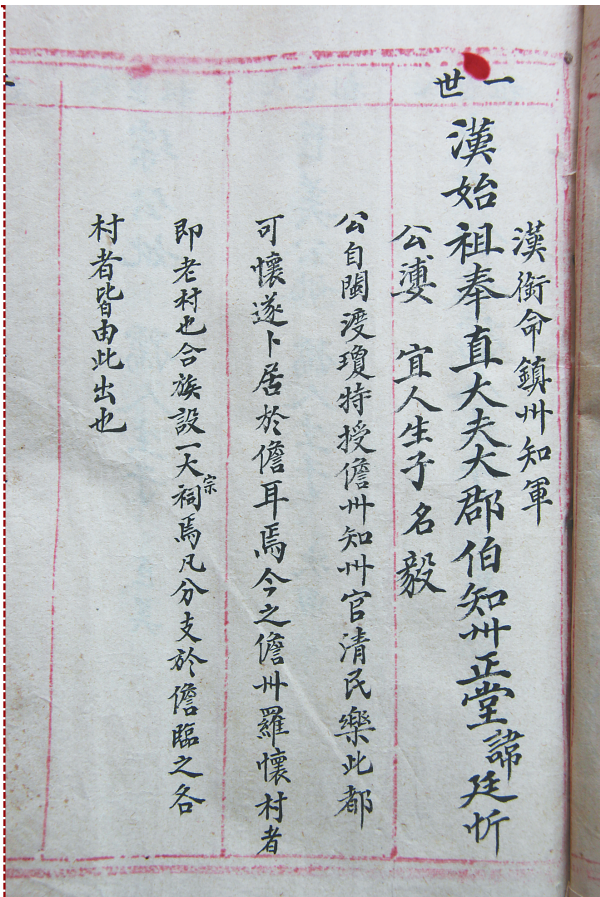 一世
漢銜命鎮州知軍
漢始祖奉直大夫大郡伯知州正堂諱廷忻
公㜢 宜人生子名毅
公自閩渡瓊特授儋州知州官清民樂此都
可懷遂卜居於儋耳焉今之儋州羅懷村者
即老村也合族設一大宗祠焉凡分支於儋臨之各
村者皆由此出也